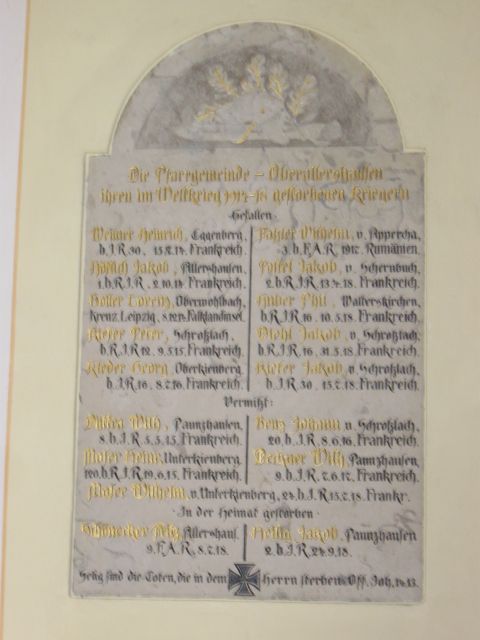 Die Pfarrgemeinde – Oberallershausen
ihren im Weltkrieg 1914-18 gestorbenen Kriegern
Gefallen
Heinrich, Eggenberg,
b.I.R. 30, Frankreich.
Jakob, Allershausen,
1.b.R.I.R., 2.10.14. Frankreich.
Holler Lorenz, Oberwohlbach,
Kreuz. Leipzig, 8.12.14. Falklandinsel.
Kiefer Peter, Schroßlach,
b.R.I.R. 12. 9.5.15. Frankreich.
Rieder Georg, Oberkienberg,
b.I.R. 16. 8.2.16. Frankreich.
Wilhelm, v. Appercha,
3.b.F.A.R. 1917. Rumänien.
Jakob, v. Schernbuch,
2.b.R.I.R. Frankreich.
Huber Phil., Walterskirchen,
b.R.I.R. 16. 10.5.18. Frankreich.
Jakob, v. Schroßlach,
b.R.I.R. 16. 31.5.18. Frankreich.
Kiefer Jakob, v. Schroßlach,
b.I.R. 30. 15.7.18. Frankreich.
Vermißt:
Wilh., Paunzhausen,
8.b.I.R. 5.5.15. Frankreich.
Moser Heinr., Unterkienberg,
b.R.I.R. 19.6.15. Frankreich.
Benz Johann v. Schroßlach,
20.b.I.R. 8.6.16. Frankreich.
Wilh., Paunzhausen,
9.b.I.R. Frankreich.
Moser Wilhelm, v. Unterkienberg, b.I.R. 15.7.18. Frankr.
In der Heimat gestorben
Schönecker Allershaus.
9.F.A.R., 8.7.18.
Heilig Jakob, Paunzhausen
2.b.I.R. 24.9.18.
Selig sind die Toten, die in dem Herrn sterben. Off. Joh. 14.13.